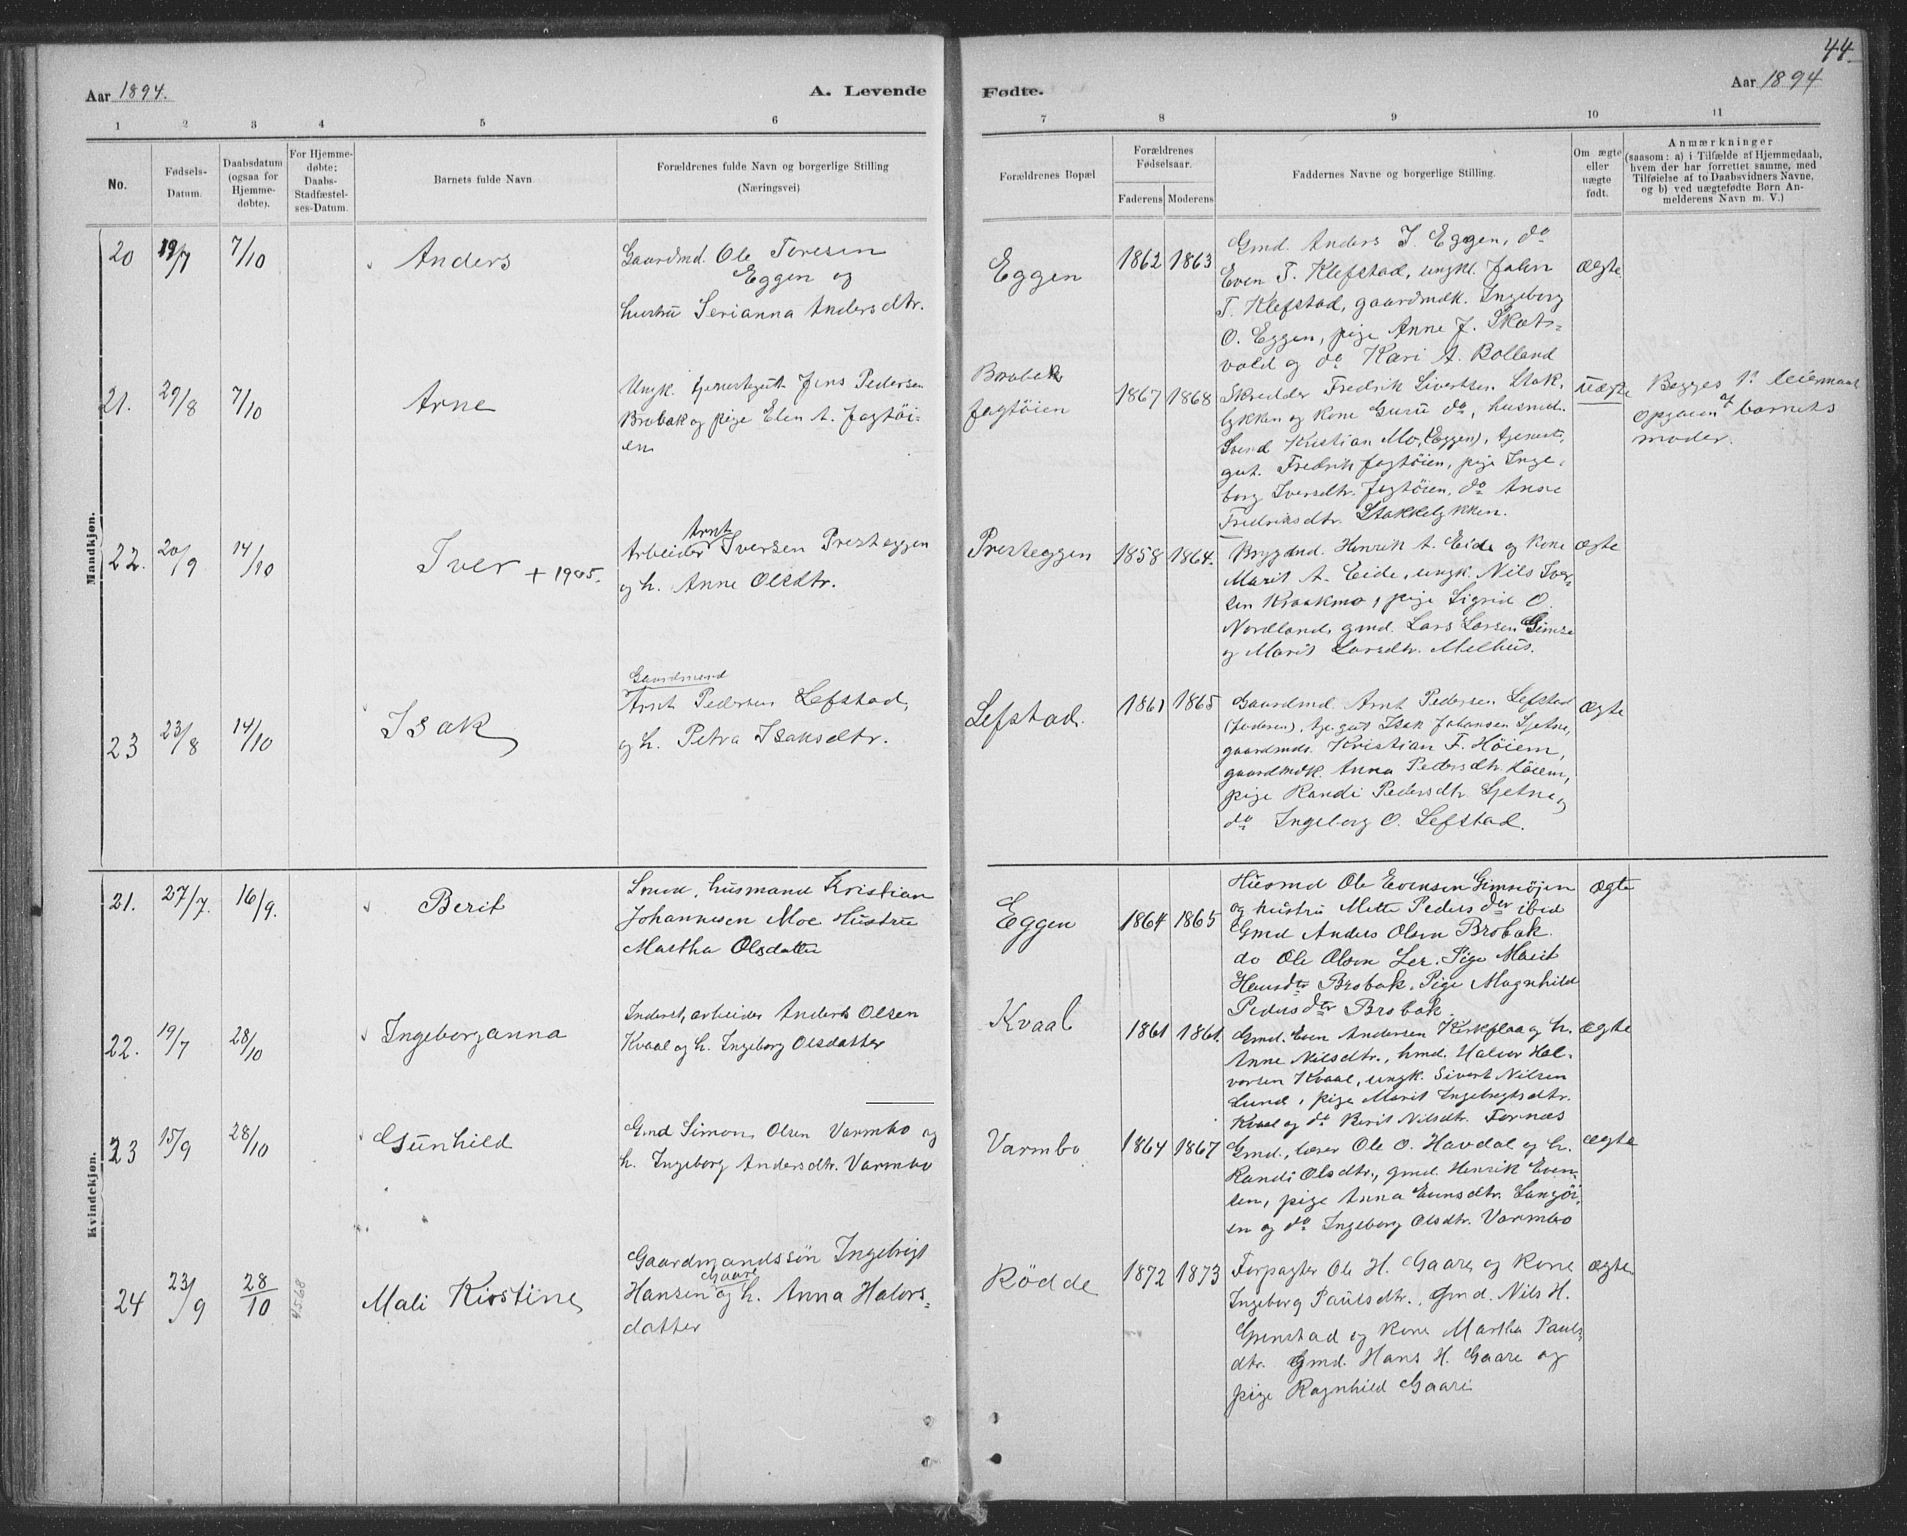 44.
Aar 1894.
A. Levende
Fødte.
Aar 1894
1 2 3 4 5 6 7 8 9 10 11
No.
Fødsels-
Datum.
Daabsdatum
(ogsaa for
Hjemme-
døbte).
For Hjemme-
døbte:
Daabs-
Stadfæstel-
ses-Datum.
Barnets fulde Navn
Forældrenes fulde Navn og borgerlige Stilling
(Næringsvei)
Forældrenes Bopæl
Forældrenes
Fødselsaar.
Faderens Moderens
Faddernes Navne og borgerlige Stilling.
Om ægte
eller
uægte
født.
Anmærkninger
(saasom: a) i Tilfælde af Hjemmedaab,
hvem der har forrettet samme, med
Tilføielse af to Daabsvidners Navne,
og b) ved uægtefødte Børn An-
melderens Navn m. V.)
Mandkjøn.
20 19/7 7/10
Anders
Gaardmd. Ole Toresen
Eggen og
hustru Serianna Andersdtr.
Eggen
1862 1863
Gmd. Anders J. Eggen, do
Even T. Klefstad, ungk. John
T. Klefstad, gaardmdk. Ingeborg
O. Eggen, pige Anne J. Skæts-
vold og do Kari A. Bolland
ægte
21. 29/8 7/10
Arne
Ungk. tjenestegut Jens Pedersen
Brobak og pige Elen A. Jagtøi-
en
Brobak
Jagtøien
1867 1868
Skredder Fredrik Sivertsen Stok-
lykken og kone Guru do, husmd.
Svend Kristian Mo, (Eggen), tjeneste-
gut. Fredrik Jagtøien, pige Inge-
borg Iversdtr. Jagtøien, do Anne
Fredriksdtr. Stokkelykken.
uægte
Begges 1ste leiermaal
opgiven af barnets
moder.
22. 20/9 14/10
Iver + 1905.
Arnt
Arbeider Iversen Presteggen
og h. Anne Olsdtr.
Presteggen
1858 1864.
Brygmd. Henrik A. Eide og kone
Marit A. Eide, ungk. Nils Iver-
sen Kraakmo, pige Sigrid O.
Nordland, gmd. Lars Larsen Gimse
og Marit Larsdtr. Melhus.
ægte
23 23/8 14/10
Isak
Gaardmand
Arnt Pedersen Lefstad,
og h. Petra Isaksdtr.
Lefstad.
1861 1865
Gaardmd. Arnt Pedersen Lefstad
(faderen), tje.gut Isak Johansen Sjetne,
gaardmds. Kristian F. Høiem,
gaardmdk. Anna Pedersdtr. Høiem,
pige Randi Pedersdtr. Sjetne og
do Ingeborg O. Lefstad.
ægte
Kvindekjøn.
21. 27/7. 16/9.
Berit
Smed, husmand Kristian
Johannesen Moe Hustru
Martha Olsdatter
Eggen
1864 1865
Husmd Ole Evensen Gimseøien
og hustru Mette Pedersder ibid
Gmd Anders Olsen Brobak.
do Ole Olsen Ler. Pige Marit
Hansdtr Brobak. Pige Magnhild
Pedersder Brobak.
ægte
22. 19/7 28/10
Ingeborganna
Inderst, arbeider Anders Olsen
Kvaal og h. Ingeborg Olsdatter
Kvaal
1861 1861.
Gmd. Even Andersen Kirkflaa og h.
Anne Nilsdtr., hmd. Halvor Hal-
vorsen Kvaal, ungk. Sivert Nilsen
Lund, pige Marit Ingebrigtsdtr.
Kvaal og do Berit Nilsdtr. Fornæs
ægte
23 15/9 28/10
Gunhild
Gmd Simon Olsen Varmbo og
h. Ingeborg Andersdtr. Varmbo
Varmbo
1864 1867
Gmd., lærer Ole O. Havdal og h.
Randi Olsdtr., gmd. Henrik Even-
sen, pige Anna Evensdtr. Langøi-
en og do Ingeborg Olsdtr. Varmbo
ægte
24 23/9 28/10
4568
Mali Kirstine
Gaardmandssøn Ingebrigt
Gaare
Hansen og h. Anna Halvors-
datter
Rødde
1872 1873
Forpagter Ole H. Gaare og kone
Ingeborg Paulsdtr., Gmd. Nils H.
Grinstad og kone Martha Pauls-
dtr. gmd. Hans H. Gaare og
pige Ragnhild Gaare
ægte